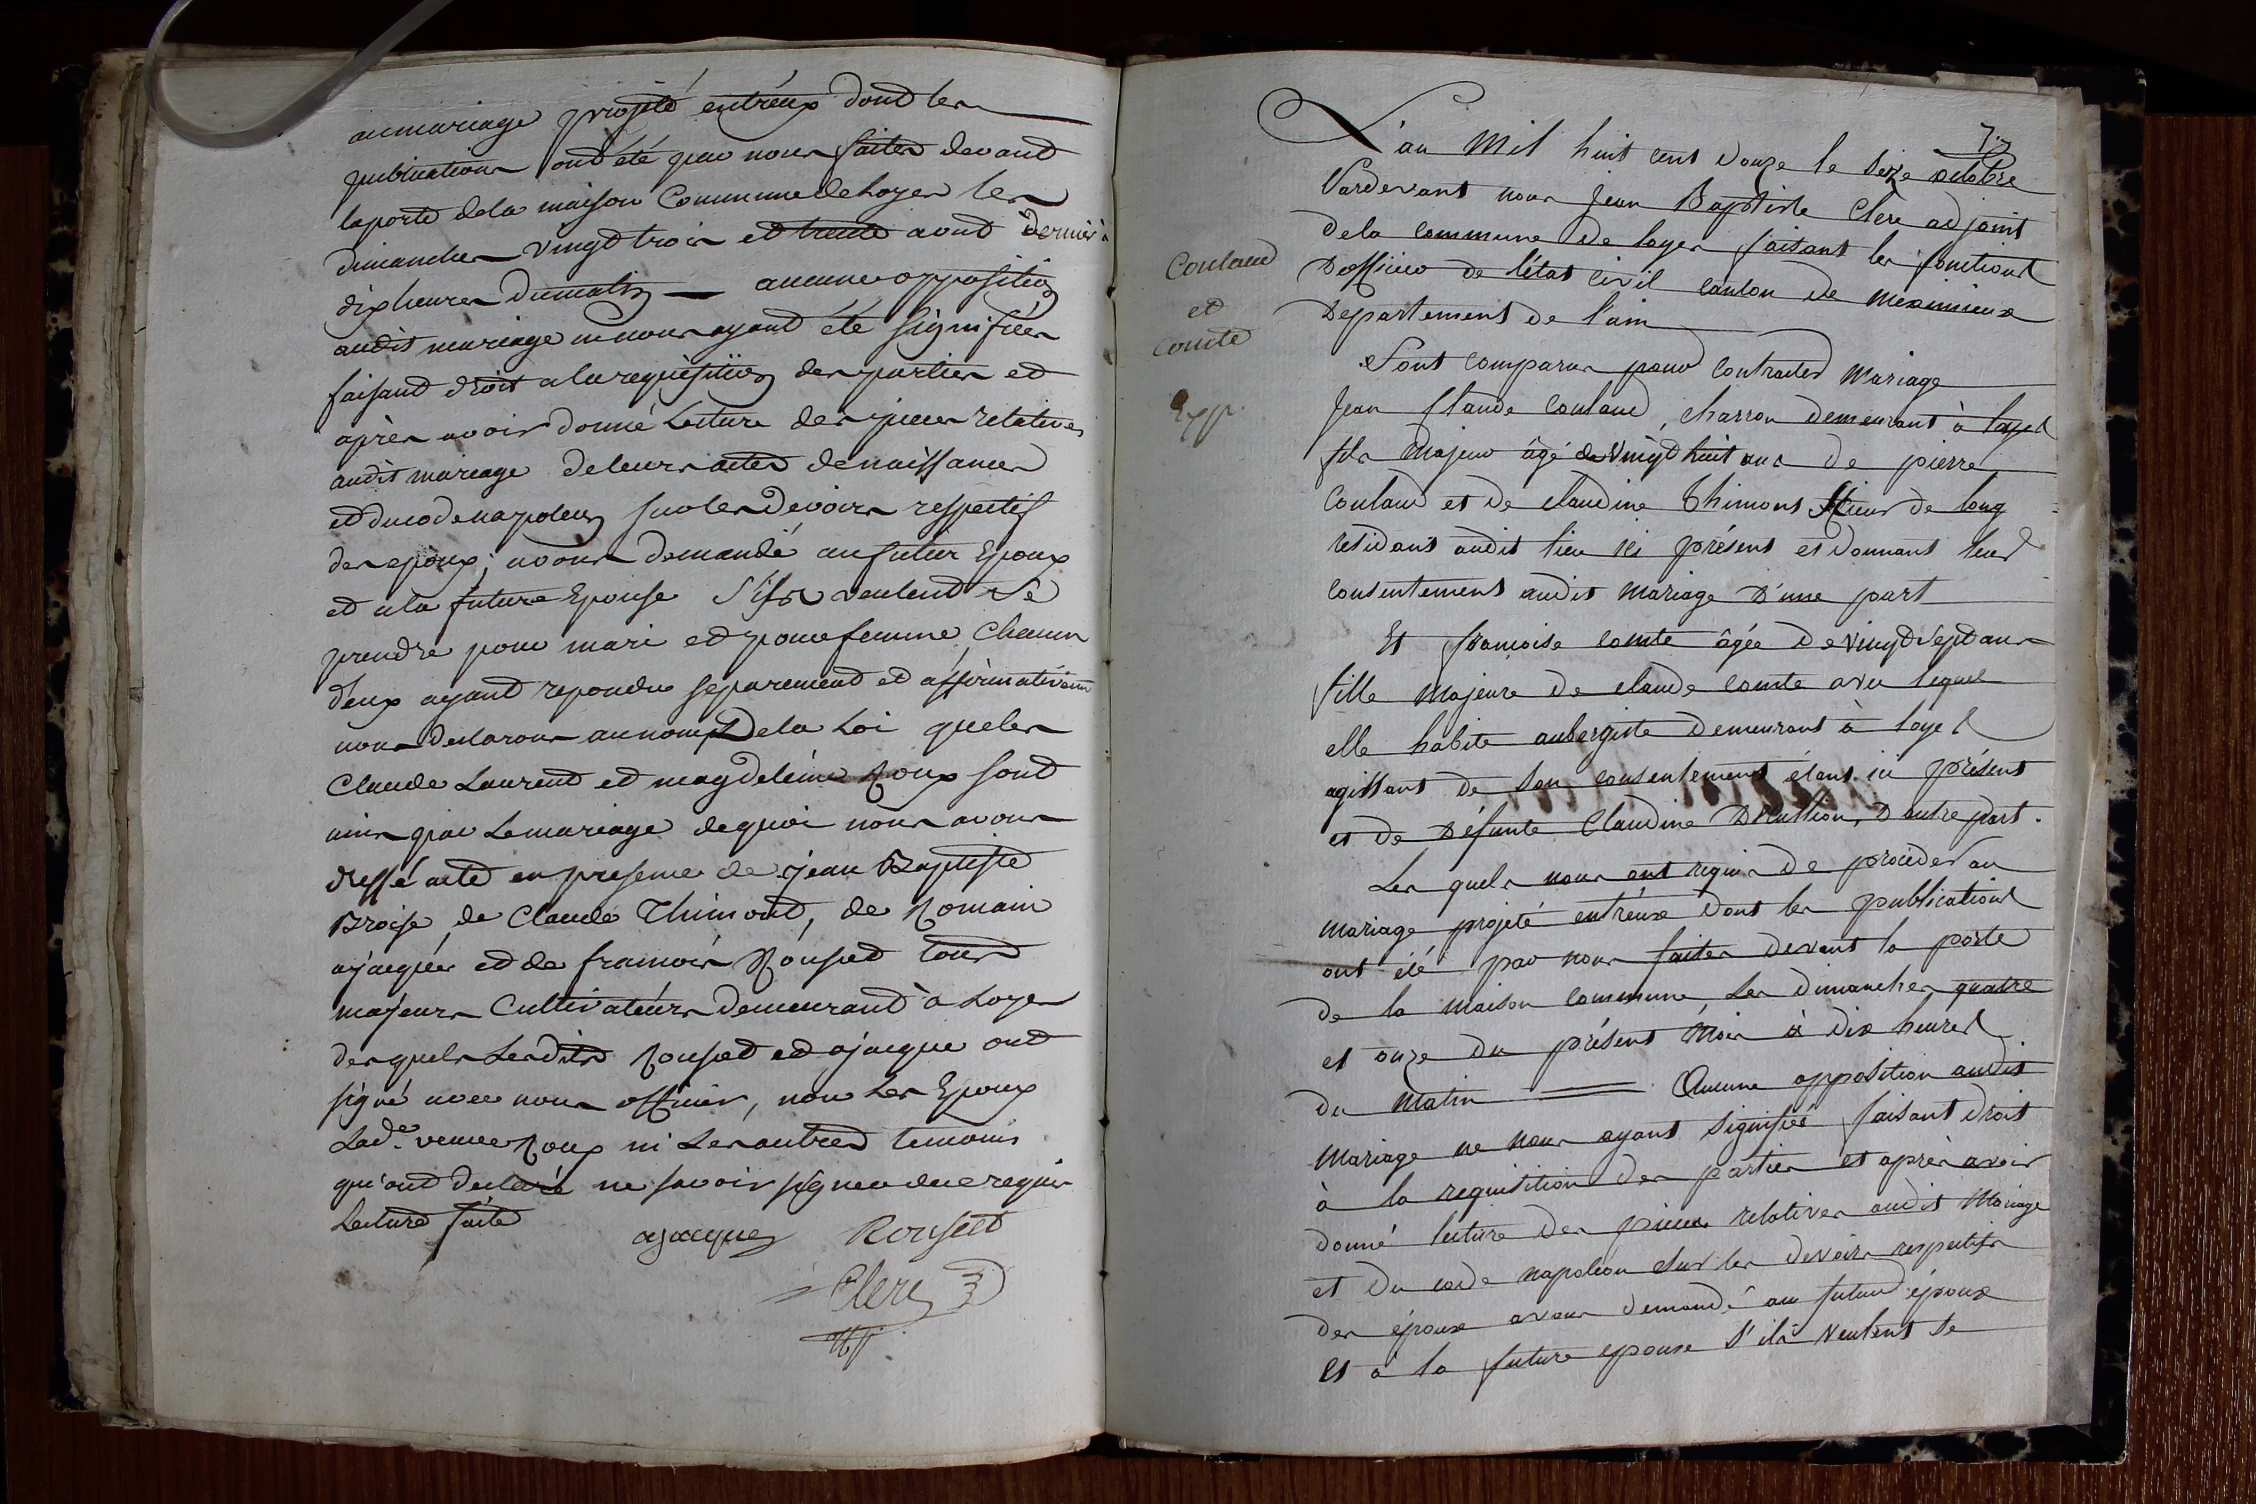 au mariage projété entréux dont les
publications ont été par nous faites devant
la porte dela maison Commune de Loyes les
dimanches vingt trois et trente aout dernier à
dix heures du matin — aucune opposition
audit mariage ne nous ayant été signifiées
faisant droit a la requisition des parties et
après avoir donné Lecture des pieces relatives
audit mariage de leurs actes de naissances
et du code napoleon sur les devoirs respectifs
des epoux, avons demandé au futur Epoux
et a la future Epouse S'ils veulent Se
prendre pour mari et pour femme, Chacun
d'eux ayant repondu separement et affirmativemt
nous declarons au nom De la Loi que les
Claude Laurent et magdeleine Roux sont
unis par Le mariage de quoi nous avons
dressé acte en presence de jean Baptiste
Broise, de Claude Thimont, de Romain
ajacques et de francois Rouset tous
majeurs Cultivateurs Demeurant à Loyes
desquels Lesdits Rouset et ajacque ont
signé avec nous officier, non Les Epoux
Lade. veuve Roux ni Les autres temoins
qu'ont declaré ne savoir signer de ce requis
Lecture faite
ajacques Rouset
Clerc
77
L'an Mil huit cent douze le seize octobre
Pardevant nous Jean Baptiste Clerc adjoint
dela commune de loyes faisant les fonctions
D'officier de l'état civil canton de meximieux
Departement de l'ain
Coulaud
et
comte
Exp.
Sont comparus pour Contracter Mariage
Jean Claude Coulaud, charron demeurant à loyes
fils Majeur âgé de vingt huit ans de pierre
Coulaud et de claudine Thimont de long
residant audit lieu ici présent et donnant leur
consentement audit Mariage D'une part
Et francoise comte âgée de vingt sept ans
fille Majeure de claude comte avec lequel
elle habite aubergiste Demeurant à loyes
agissant de son consentement étant ici présent
et de Défunte Claudine D'autre part.
Les quels nous ont requis de procéder au
Mariage projeté entréux dont les publications
ont été par nous faites devant la porte
de la Maison Commune, Les dimanches quatre
et onze du présent Mois à dix heures
du Matin — Aucune opposition audit
Mariage ne nous ayant signifiée faisant droit
à la requisition des parties et après avoir
donné lecture des pieces relatives audit Mariage
et Du code napoléon Sur les devoirs respectifs
des époux avons demandé au futur époux
Et à la future epouse S'ils veulent se